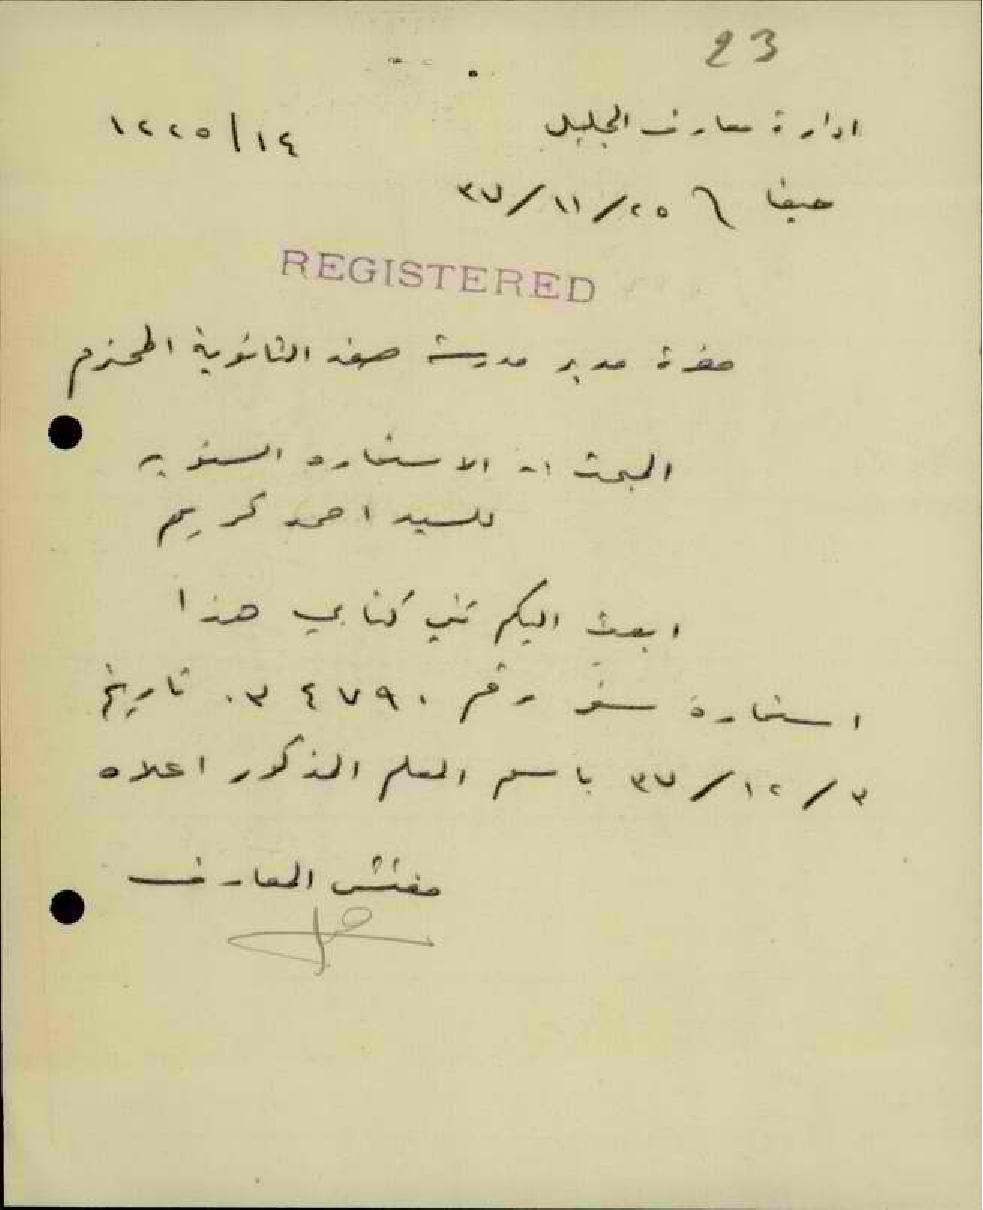 23
ادارة معارف الجليل
١٢٢٥/١٤
حيفا ٢٥/١١/٣٧
REGISTERED
حضرة مدير مدرسة صفد الثانوية المحترم
المبحث الاستماره السنويه
للسيد احمد كريم
ابعث اليكم كتابي هذا
استمارة سفر رقم ٠٣٤٧٩٠ تاريخ
٣/١٢/٣٧ باسم المعلم المذكور اعلاه
مفتش المعارف